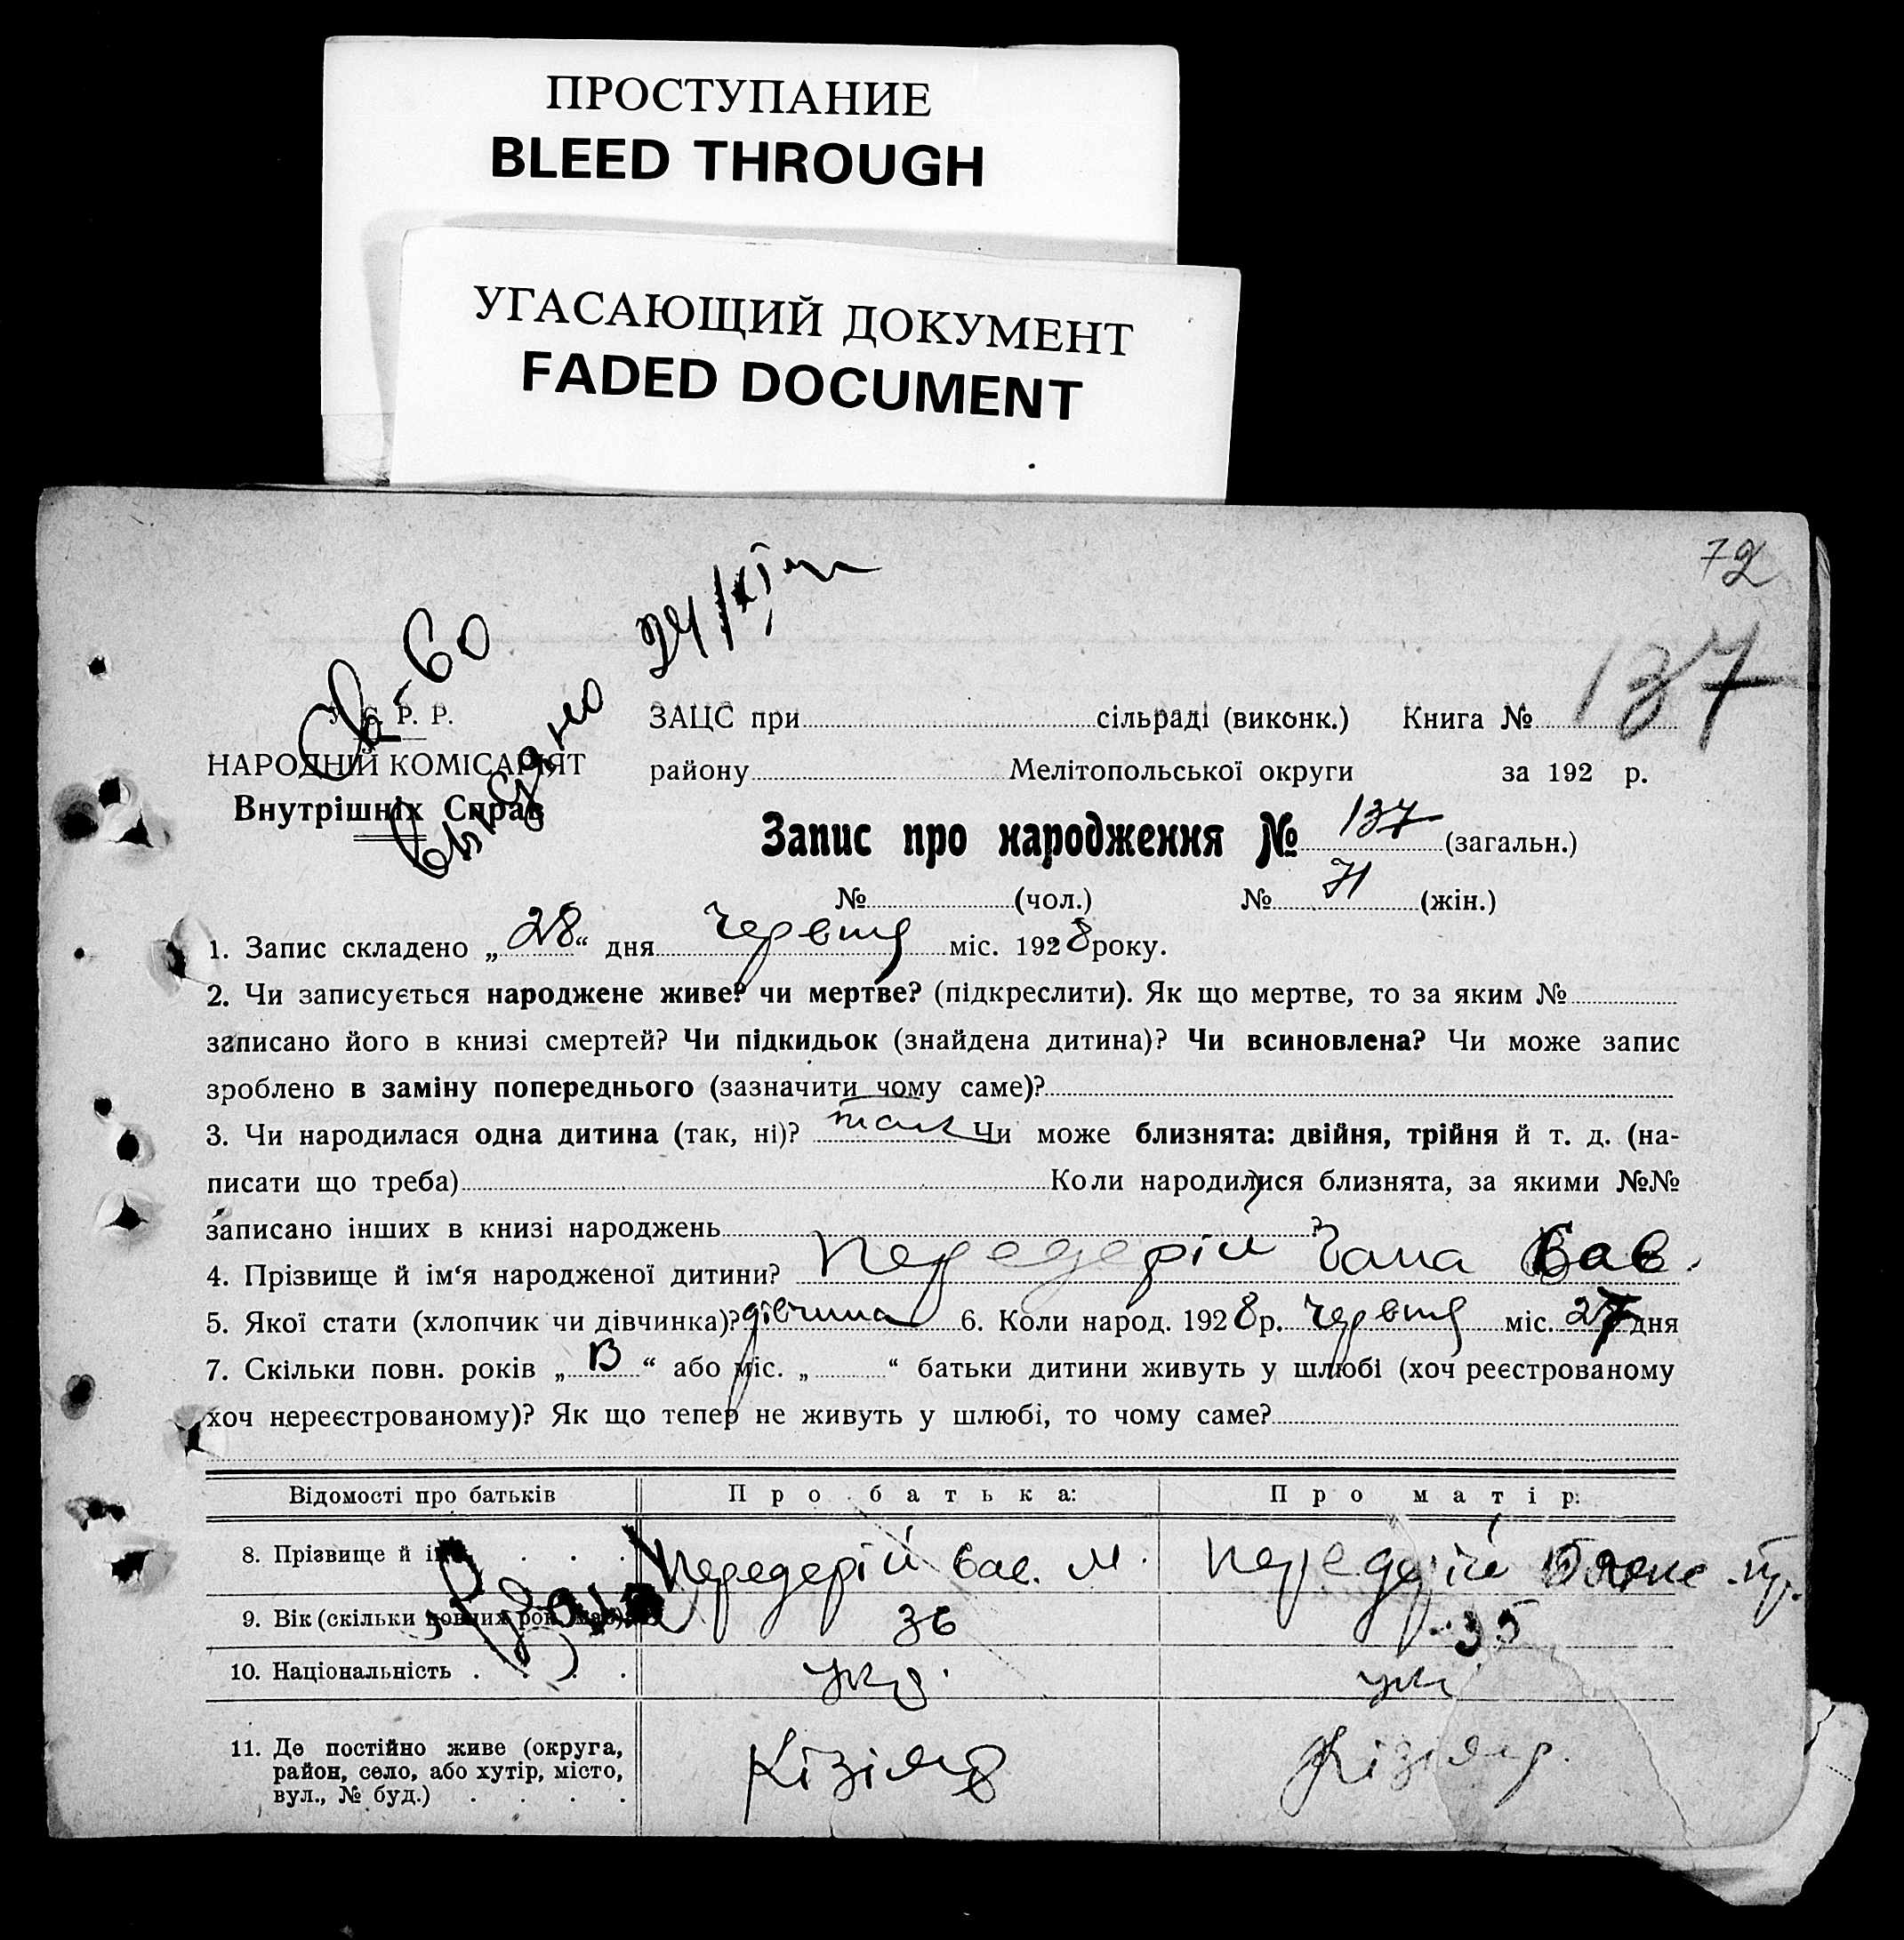 ПРОСТУПАНИЕ
BLEED THROUGH
УГАСАЮЩИЙ ДОКУМЕНТ
FADED DOCUMENT
72
137
У. С. Р. Р.
НАРОДНІЙ КОМІСАРІЯТ
Внутрішніх Справ
ЗАЦС при сільраді (виконк.) Книга №
району Мелітопольської округи за 192 р.
Запис про народження № 137 (загальн.)
№ (чол.) № 71 (жін.)
1. Запис складено „28“ дня червця міс. 1928 року.
2. Чи записується народжене живе? чи мертве? (підкреслити). Як що мертве, то за яким №
записано його в книзі смертей? Чи підкидьок (знайдена дитина)? Чи всиновлена? Чи може запис
зроблено в заміну попереднього (зазначити чому саме)?
3. Чи народилася одна дитина (так, ні)? так Чи може близнята: двійня, трійня й т. д. (на-
писати що треба) Коли народилися близнята, за якими №№
записано інших в книзі народжень ?
4. Прізвище й ім‘я народженої дитини? Передерій Вас.
5. Якої стати (хлопчик чи дівчинка)? дівчина 6. Коли народ. 1928 р. червця міс. 27 дня
7. Скільки повн. років „13“ або міс. „ “ батьки дитини живуть у шлюбі (хоч реєстрованому
хоч нереєстрованому)? Як що тепер не живуть у шлюбі, то чому саме?
Відомості про батьків Про батька: Про матір:
8. Прізвище й ім. Передерій Вас. М. Передерій
9. Вік (скільки повних рок. має) 36 35
10. Національність укр. укр
11. Де постійно живе (округа,
район, село, або хутір, місто,
вул., № буд.) Кізіяр Кізіяр.